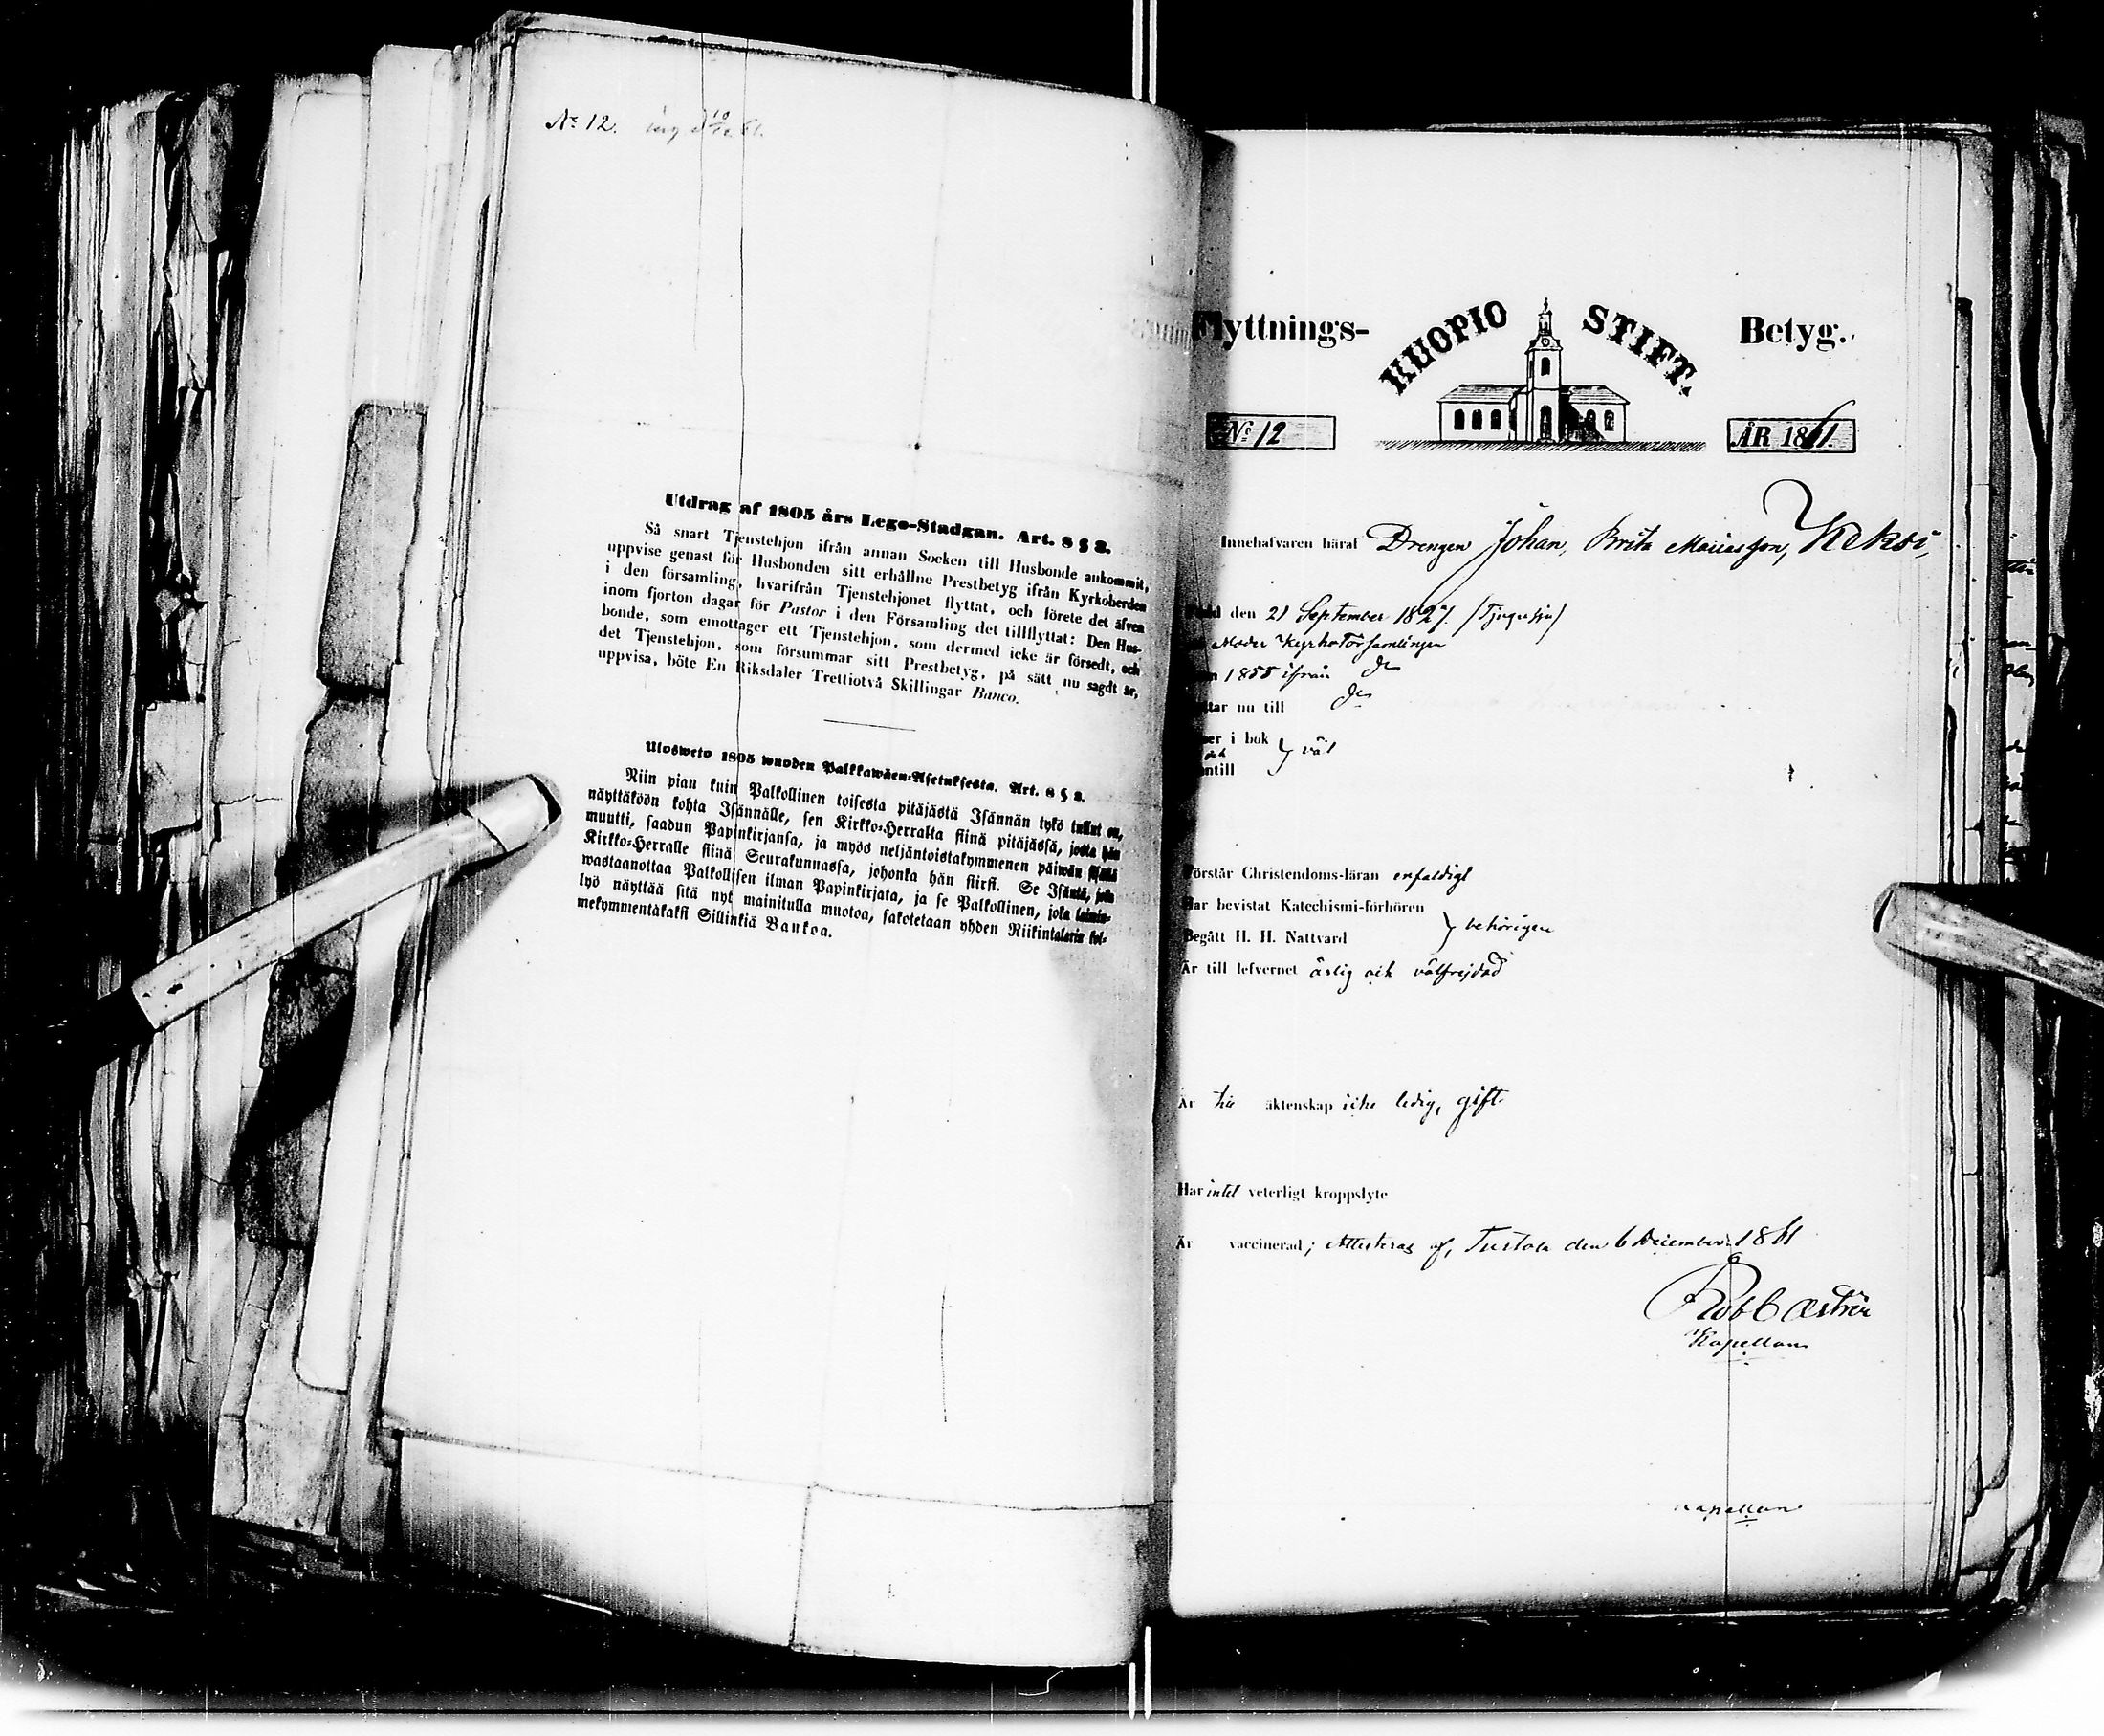 No 12. ing d 10/12 61.
Utdrag af 1805 års Lego-Stadgan. Art. 8 § 3.
Så snart Tjenstehjon ifrån annan Socken till Husbonde ankommit,
uppvise genast för Husbonden sitt erhållne Prestbetyg ifrån Kyrkoherden
i den församling, hvarifrån Tjenstehjonet flyttat, och förete det äfven
inom fjorton dagar för Pastor i den Församling det tillflyttat: Den Hus-
bonde, som emottager ett Tjenstehjon, som dermed icke är försedt, och
det Tjenstehjon, som försummar sitt Prestbetyg, på sätt nu sagdt är,
uppvisa, böte En Riksdaler Trettiotvå Skillingar Banco.
Ulosweto 1805 wuoden Palkkawäen-Asetuksesta. Art. 8 § 3.
Niin pian kuin Palkollinen toisesta pitäjästä Isännän tykö tullut on,
näyttäköön kohta Isännälle, sen Kirkko-Herralta siinä pitäjässä, josta hän
muutti, saadun Papinkirjansa, ja myös neljäntoistakymmenen päiwän sisällä
Kirkko-Herralle siinä Seurakunnassa, johonka hän siirsi. Se Isäntä, joka
wastaanottaa Palkollisen ilman Papinkirjata, ja se Palkollinen, joka laimin-
lyö näyttää sitä nyt mainitulla muotoa, sakotetaan yhden Riikintalarin kol-
mekymmentäkaksi Sillinkiä Bankoa.
Flyttnings- KUOPIO STIFT. Betyg.
No 12 ÅR 1861.
Innehafvaren häraf Drengen Johan, Brita Mariasson, Keksi,
Född den 21 September 1827. (Tjugusju)
Moder Kyrko Församlingen
1855 ifrån do
tar nu till do
er i bok
och } väl
ntill
Förstår Christendoms-läran enfaldigt
Har bevistat Katechismi-förhören
} behörigen
Begått H. H. Nattvard
Är till lefvernet ärlig och välfrejdad
Är äktenskap icke ledig, gift.
Har intet veterligt kroppslyte
Är vaccinerad; Attesteras af, den 6 December 1861
Rob Castrén
Kapellan
Kapellan